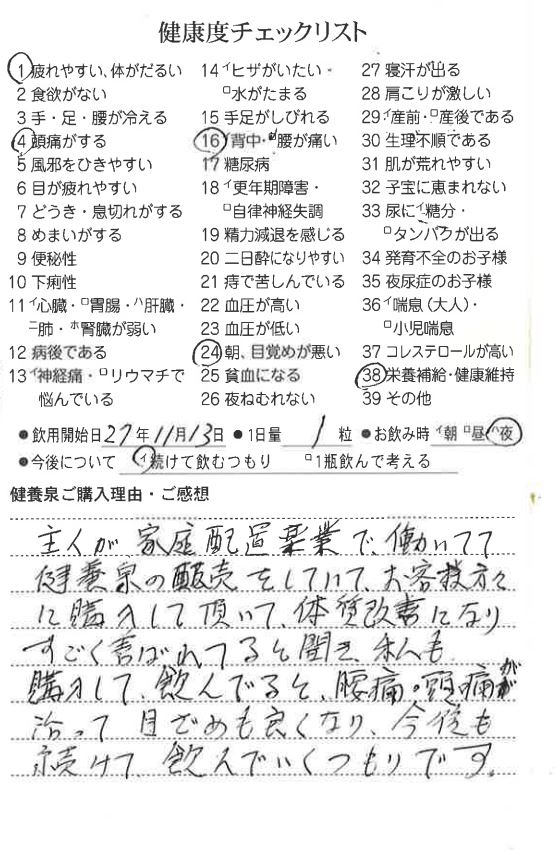 健康度チェックリスト
1 疲れやすい、体がだるい
2 食欲がない
3 手・足・腰が冷える
4 頭痛がする
5 風邪をひきやすい
6 目が疲れやすい
7 どうき・息切れがする
8 めまいがする
9 便秘性
10 下痢性
11 イ心臓・ロ胃腸・ハ肝臓・
ニ肺・ホ腎臓が弱い
12 病後である
13 イ神経痛・ロリウマチで
悩んでいる
14 イヒザがいたい
ロ水がたまる
15 手足がしびれる
16 イ背中・ロ腰が痛い
17 糖尿病
18 イ更年期障害・
ロ自律神経失調
19 精力減退を感じる
20 二日酔になりやすい
21 痔で苦しんでいる
22 血圧が高い
23 血圧が低い
24 朝、目覚めが悪い
25 貧血になる
26 夜ねむれない
27 寝汗が出る
28 肩こりが激しい
29 イ産前・ロ産後である
30 生理不順である
31 肌が荒れやすい
32 子宝に恵まれない
33 尿にイ糖分・
ロタンパクが出る
34 発育不全のお子様
35 夜尿症のお子様
36 イ喘息（大人）・
ロ小児喘息
37 コレステロールが高い
38 栄養補給・健康維持
39 その他
●飲用開始日27年11月13日 ●1日量 1 粒 ●お飲み時 イ朝 ロ昼 ハ夜
●今後について イ続けて飲むつもり ロ1瓶飲んで考える
健養泉ご購入理由・ご感想
主人が、家庭配置薬業で、働いてて
健養泉の販売をしていて、お客様方々
に購入して頂いて、体質改善になり
すごく喜ばれてると聞き、私も
購入して、飲んでると、腰痛・頭痛が
治って目ざめも良くなり、今後も
続けて飲んでいくつもりです。